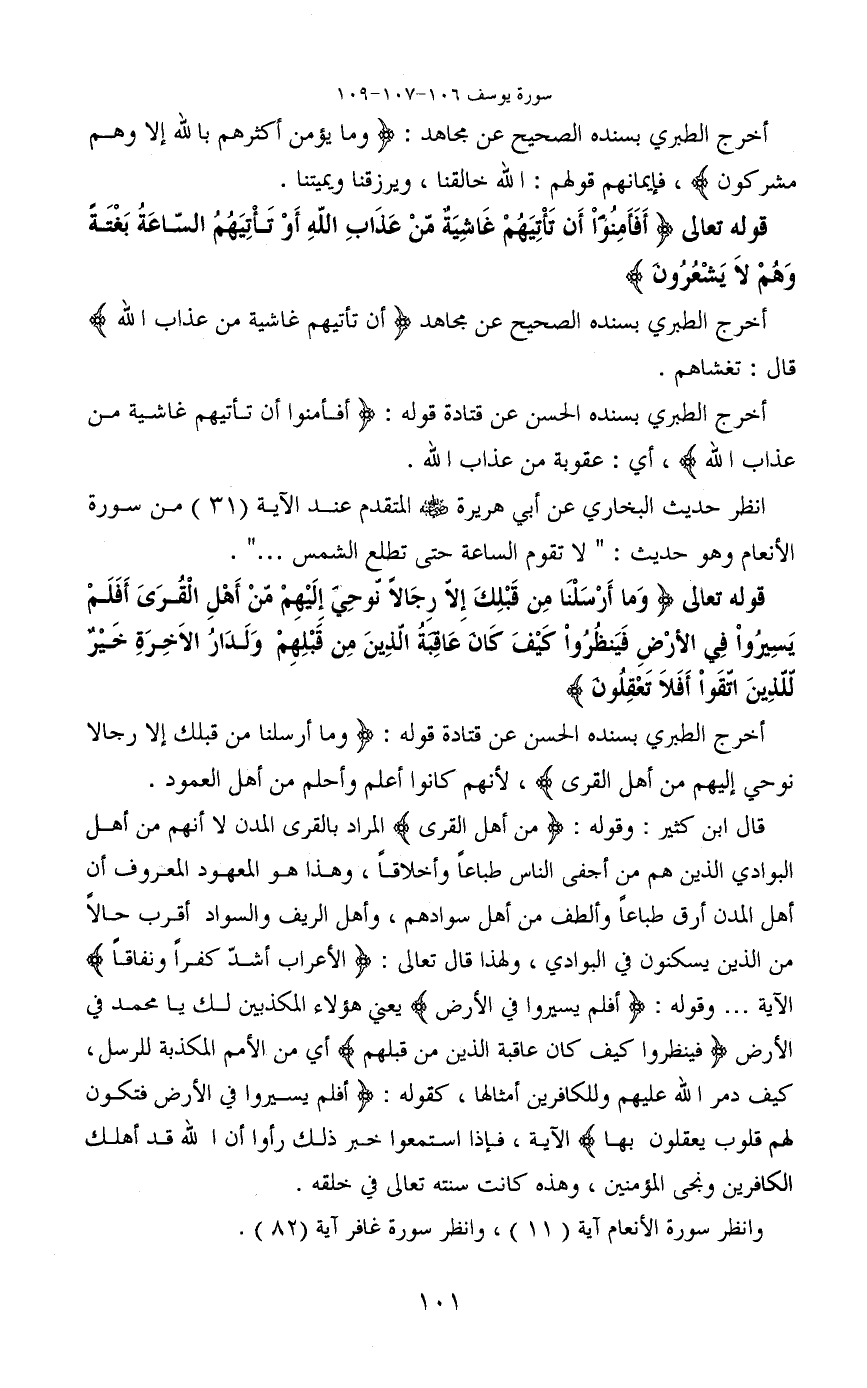 سورة يوسف ١٠٦-١٠٧-١٠٩
أخرج الطبري بسنده الصحيح عن مجاهد : ﴿ وما يؤمن أكثرهم بالله إلا وهـم
مشركون ﴾ ، فإيمانهم قولهم : الله خالقنا ، ويرزقنا ويميتنا .
قوله تعالى ﴿ أَفَأَمِنُوَاْ أَن تَأْتِيَهُمْ غَاشِيَةٌ مّنْ عَذَابِ اللّهِ أَوْ تَـأْتِيَهُمُ السّـاعَةُ بَغْتَـةً
وَهُمْ لاَ يَشْعُرُونَ ﴾
أخرج الطبري بسنده الصحيح عن مجاهد ﴿ أن تأتيهم غاشية من عذاب الله ﴾
قال : تغشاهم .
أخرج الطبري بسنده الحسن عن قتادة قوله : ﴿ أفـأمنوا أن تـأتيهم غاشـية مـن
عذاب الله ﴾ ، أي : عقوبة من عذاب الله .
انظر حديث البخاري عن أبي هريرة ﷺ المتقدم عنـد الآيـة (٣١ ) مـن سـورة
الأنعام وهو حديث : " لا تقوم الساعة حتى تطلع الشمس ..." .
قوله تعالى ﴿ وَمَا أَرْسَلْنَا مِن قَبْلِكَ إِلاّ رِجَالاً نّوحِيَ إِلَيْهِمْ مّنْ أَهْلِ الْقُـرَىَ أَفَلَـمْ
يَسِيرُواْ فِي الأرْضِ فَيَنظُرُواْ كَيْفَ كَانَ عَاقِبَةُ الّذِينَ مِن قَبْلِهِمْ وَلَـدَارُ الاَخِـرَةِ خَـيْرٌ
لّلّذِينَ اتّقَواْ أَفَلاَ تَعْقِلُونَ ﴾
أخرج الطبري بسنده الحسن عن قتادة قوله : ﴿ وما أرسلنا من قبلك إلا رجالا
نوحي إليهم من أهل القرى ﴾ ، لأنهم كانوا أعلم وأحلم من أهل العمود .
قال ابن كثير : وقوله : ﴿ من أهل القرى ﴾ المراد بالقرى المدن لا أنهم من أهـل
البوادي الذين هم من أجفى الناس طباعاً وأخلاقـاً ، وهـذا هـو المعهود المعروف أن
أهل المدن أرق طباعاً وألطف من أهل سوادهم ، وأهل الريف والسواد أقرب حـالاً
من الذين يسكنون في البوادي ، ولهذا قال تعالى : ﴿ الأعراب أشـدّ كفـراً ونفاقـاً ﴾
الآية ... وقوله : ﴿ أفلم يسيروا في الأرض ﴾ يعني هؤلاء المكذبين لـك يـا محمـد في
الأرض ﴿ فينظروا كيف كان عاقبة الذين من قبلهم ﴾ أي من الأمم المكذبة للرسل،
كيف دمر الله عليهم وللكافرين أمثالها ، كقوله : ﴿ أفلم يسـيروا في الأرض فتكـون
لهم قلوب يعقلون بهـا ﴾ الآيـة ، فـإذا استمعوا خـبر ذلـك رأوا أن الله قـد أهلـك
الكافرين ونجى المؤمنين ، وهذه كانت سنته تعالى في خلقه .
وانظر سورة الأنعام آية ( ١١ ) ، وانظر سورة غافر آية (٨٢ ) .
١٠١